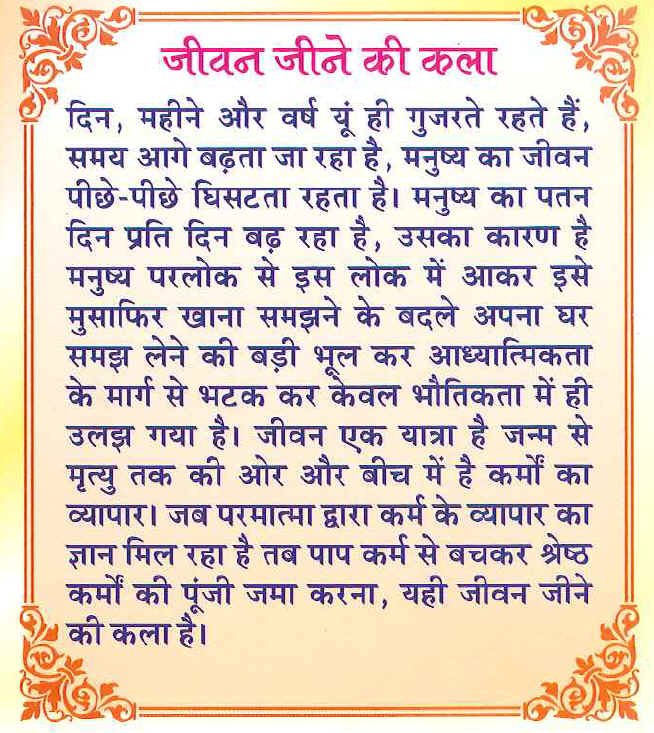 जीवन जीने की कला
दिन, महीने और वर्ष यूं ही गुजरते रहते हैं,
समय आगे बढ़ता जा रहा है, मनुष्य का जीवन
पीछे-पीछे घिसटता रहता है। मनुष्य का पतन
दिन प्रति दिन बढ़ रहा है, उसका कारण है
मनुष्य परलोक से इस लोक में आकर इसे
मुसाफिर खाना समझने के बदले अपना घर
समझ लेने की बड़ी भूल कर आध्यात्मिकता
के मार्ग से भटक कर केवल भौतिकता में ही
उलझ गया है। जीवन एक यात्रा है जन्म से
मृत्यु तक की ओर और बीच में है कर्मों का
व्यापार। जब परमात्मा द्वारा कर्म के व्यापार का
ज्ञान मिल रहा है तब पाप कर्म से बचकर श्रेष्ठ
कर्मों की पूंजी जमा करना, यही जीवन जीने
की कला है।